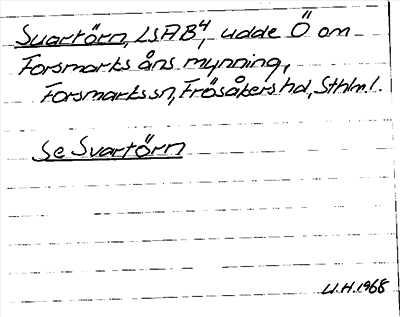 Svartörn, LSAB4, udde Ö om
Forsmarks åns mynning,
Forsmarks sn, Frösåkers hd, Sthlm.l.
Se Svartörn
U.H. 1968